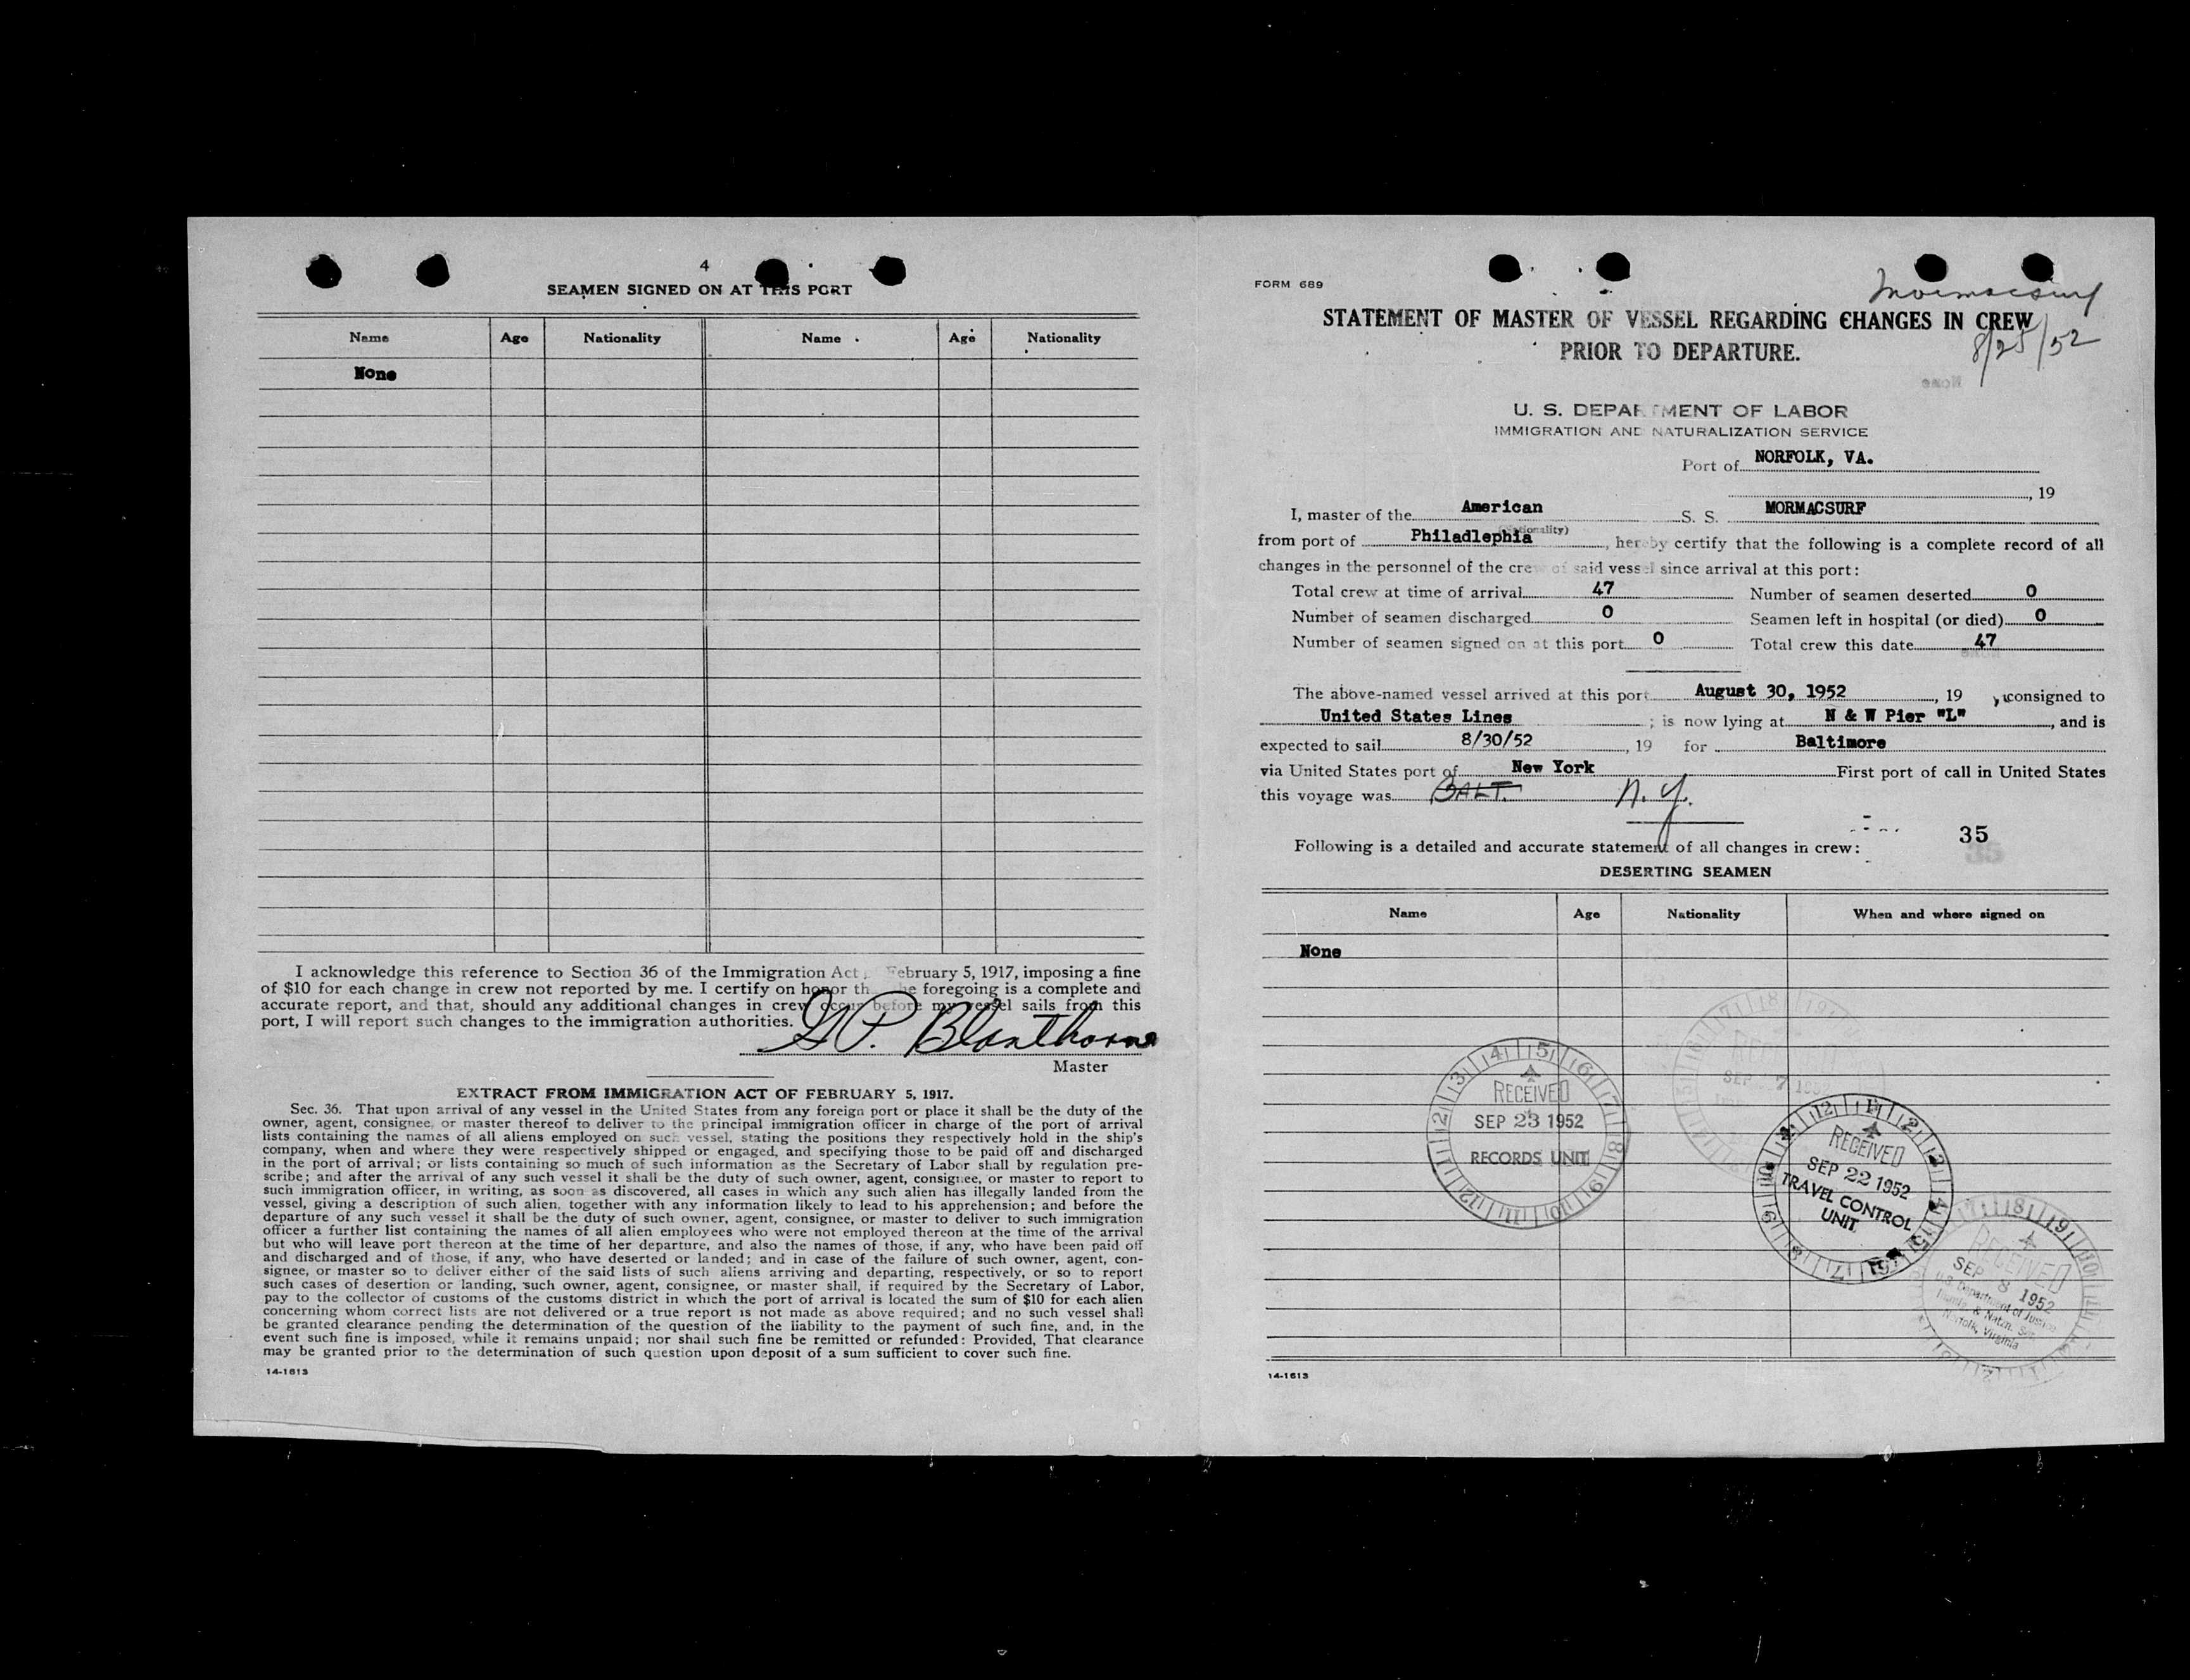 4
SEAMEN SIGNED ON AT THIS PORT
Name Age Nationality Name Age Nationality
None
I acknowledge this reference to Section 36 of the Immigration Act February 5, 1917, imposing a fine
of $10 for each change in crew not reported by me. I certify on honor th he foregoing is a complete and
accurate report, and that, should any additional changes in crew occur before my vessel sails from this
port, I will report such changes to the immigration authorities.
G P. Blanthorne
Master
EXTRACT FROM IMMIGRATION ACT OF FEBRUARY 5, 1917.
Sec. 36. That upon arrival of any vessel in the United States from any foreign port or place it shall be the duty of the
owner, agent, consignee, or master thereof to deliver to the principal immigration officer in charge of the port of arrival
lists containing the names of all aliens employed on such vessel, stating the positions they respectively hold in the ship's
company, when and where they were respectively shipped or engaged, and specifying those to be paid off and discharged
in the port of arrival; or lists containing so much of such information as the Secretary of Labor shall by regulation pre-
scribe; and after the arrival of any such vessel it shall be the duty of such owner, agent, consignee, or master to report to
such immigration officer, in writing, as soon as discovered, all cases in which any such alien has illegally landed from the
vessel, giving a description of such alien, together with any information likely to lead to his apprehension; and before the
departure of any such vessel it shall be the duty of such owner, agent, consignee, or master to deliver to such immigration
officer a further list containing the names of all alien employees who were not employed thereon at the time of the arrival
but who will leave port thereon at the time of her departure, and also the names of those, if any, who have been paid off
and discharged and of those, if any, who have deserted or landed; and in case of the failure of such owner, agent, con-
signee, or master so to deliver either of the said lists of such aliens arriving and departing, respectively, or so to report
such cases of desertion or landing, such owner, agent, consignee, or master shall, if required by the Secretary of Labor,
pay to the collector of customs of the customs district in which the port of arrival is located the sum of $10 for each alien
concerning whom correct lists are not delivered or a true report is not made as above required; and no such vessel shall
be granted clearance pending the determination of the question of the liability to the payment of such fine, and, in the
event such fine is imposed, while it remains unpaid; nor shall such fine be remitted or refunded: Provided, That clearance
may be granted prior to the determination of such question upon deposit of a sum sufficient to cover such fine.
14-1613
FORM 689
Mormacsurf
8/25/52
STATEMENT OF MASTER OF VESSEL REGARDING CHANGES IN CREW
PRIOR TO DEPARTURE.
U. S. DEPARTMENT OF LABOR
IMMIGRATION AND NATURALIZATION SERVICE
Port of NORFOLK, VA.
, 19
I, master of the American S. S. MORMACSURF
(Nationality)
from port of Philadlephia, hereby certify that the following is a complete record of all
changes in the personnel of the crew of said vessel since arrival at this port:
Total crew at time of arrival 47 Number of seamen deserted 0
Number of seamen discharged 0 Seamen left in hospital (or died) 0
Number of seamen signed on at this port 0 Total crew this date 47
The above-named vessel arrived at this port August 30, 1952, 19 , consigned to
United States Lines ; is now lying at N & W Pier "L", and is
expected to sail 8/30/52, 19 for Baltimore
via United States port of New York First port of call in United States
this voyage was BALT. N.Y.
35
Following is a detailed and accurate statement of all changes in crew:
DESERTING SEAMEN
Name Age Nationality When and where signed on
None
RECEIVED
SEP 23 1952
RECORDS UNIT
RECEIVED
SEP 22 1952
TRAVEL CONTROL
UNIT
RECEIVED
SEP 8 1952
U.S. Department of Justice
Immig. & Natzn. Ser.
Norfolk, Virginia
14-1613